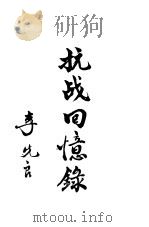 研狗
抗战回憶錄
李先良
mtoou.info